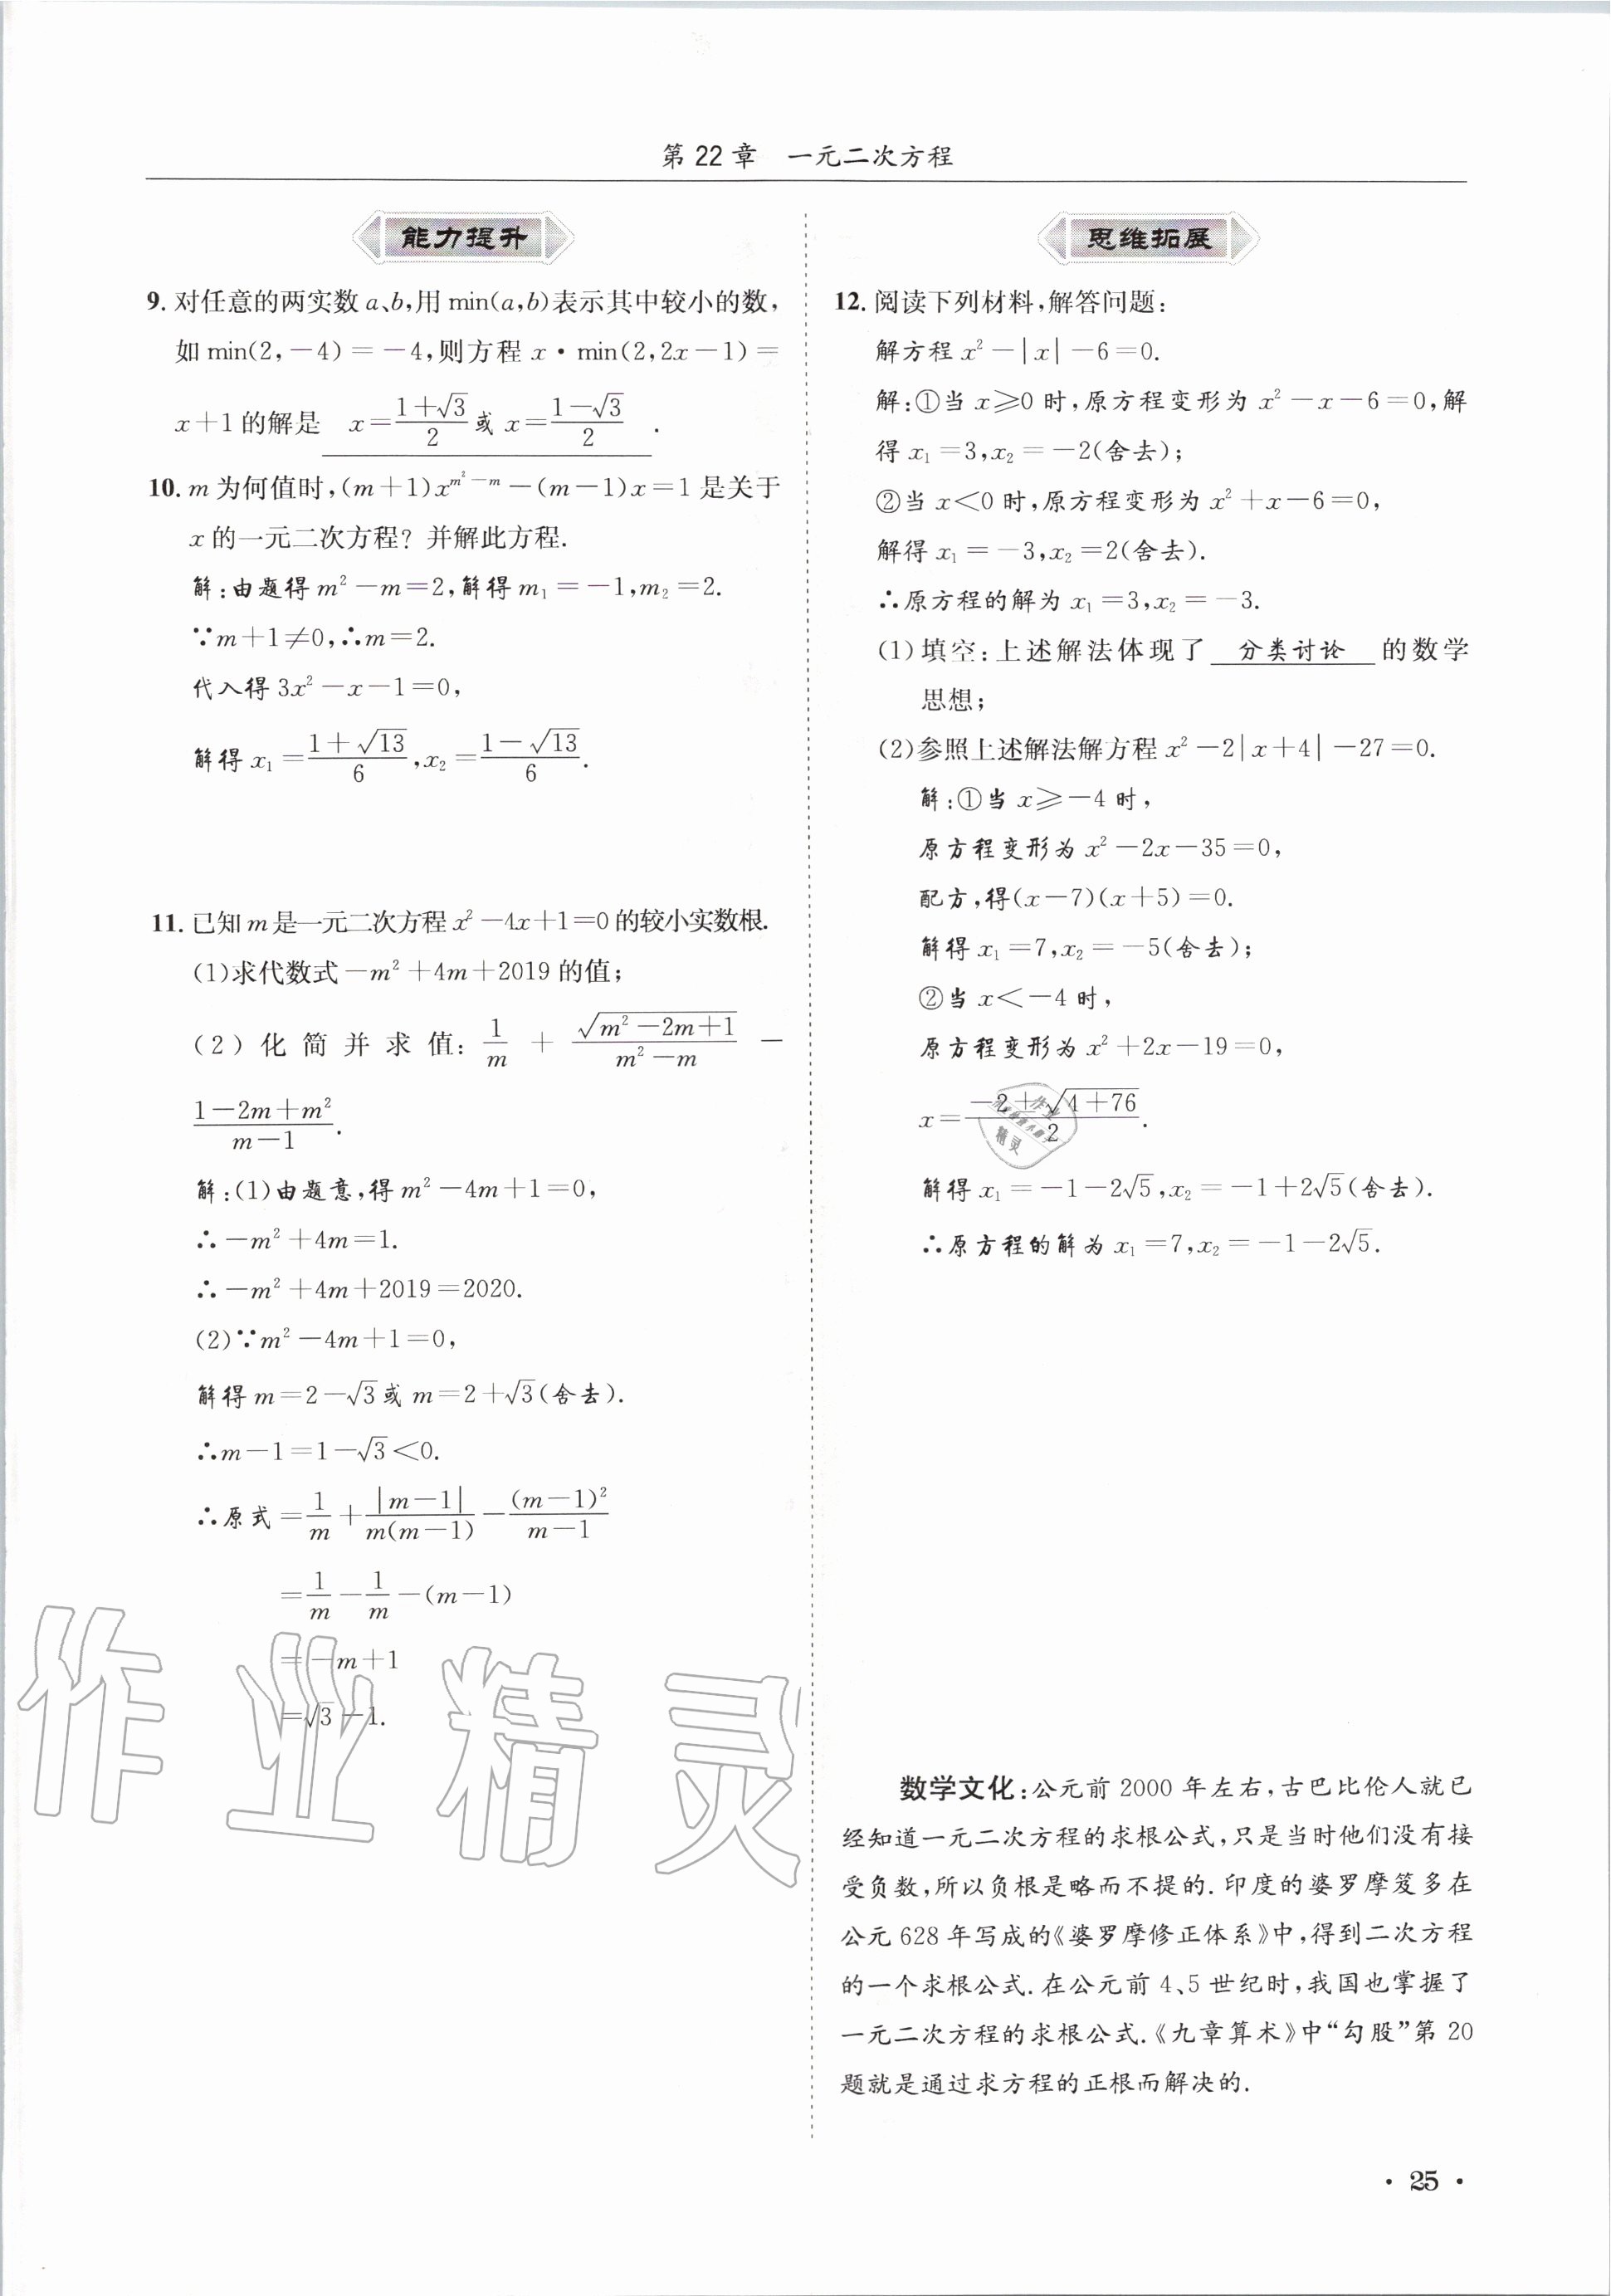 第22章 一元二次方程
能力提升
9. 对任意的两实数 a、b,用 min(a,b)表示其中较小的数,
如 min(2,-4) = -4,则方程 x·min(2,2x-1) =
x+1 的解是 x=\frac{1+√3}{2} 或 x=\frac{1-√3}{2} .
10. m 为何值时,(m+1)x^{m²-m}-(m-1)x=1 是关于
x 的一元二次方程? 并解此方程.
解:由题得 m²-m=2,解得 m₁=-1,m₂=2.
∵m+1≠0,∴m=2.
代入得 3x²-x-1=0,
解得 x₁=\frac{1+√13}{6},x₂=\frac{1-√13}{6}.
11. 已知 m 是一元二次方程 x²-4x+1=0 的较小实数根.
(1)求代数式-m²+4m+2019 的值;
(2)化简并求值: \frac{1}{m} + \frac{√(m²-2m+1)}{m²-m} -
\frac{1-2m+m²}{m-1}.
解:(1)由题意,得 m²-4m+1=0,
∴-m²+4m=1.
∴-m²+4m+2019=2020.
(2)∵m²-4m+1=0,
解得 m=2-√3 或 m=2+√3(舍去).
∴m-1=1-√3<0.
∴原式=\frac{1}{m}+\frac{|m-1|}{m(m-1)}-\frac{(m-1)²}{m-1}
=\frac{1}{m}-\frac{1}{m}-(m-1)
=-m+1
=√3-1.
思维拓展
12. 阅读下列材料,解答问题:
解方程 x²-|x|-6=0.
解:①当 x≥0 时,原方程变形为 x²-x-6=0,解
得 x₁=3,x₂=-2(舍去);
②当 x<0 时,原方程变形为 x²+x-6=0,
解得 x₁=-3,x₂=2(舍去).
∴原方程的解为 x₁=3,x₂=-3.
(1)填空:上述解法体现了 分类讨论 的数学
思想;
(2)参照上述解法解方程 x²-2|x+4|-27=0.
解:①当 x≥-4 时,
原方程变形为 x²-2x-35=0,
配方,得(x-7)(x+5)=0.
解得 x₁=7,x₂=-5(舍去);
②当 x<-4 时,
原方程变形为 x²+2x-19=0,
x=\frac{-2±√(4+76)}{2}.
解得 x₁=-1-2√5,x₂=-1+2√5(舍去).
∴原方程的解为 x₁=7,x₂=-1-2√5.
数学文化:公元前 2000 年左右,古巴比伦人就已
经知道一元二次方程的求根公式,只是当时他们没有接
受负数,所以负根是略而不提的.印度的婆罗摩笈多在
公元 628 年写成的《婆罗摩修正体系》中,得到二次方程
的一个求根公式.在公元前 4、5 世纪时,我国也掌握了
一元二次方程的求根公式.《九章算术》中“勾股”第 20
题就是通过求方程的正根而解决的.
作业精灵
作业
精灵
· 25 ·